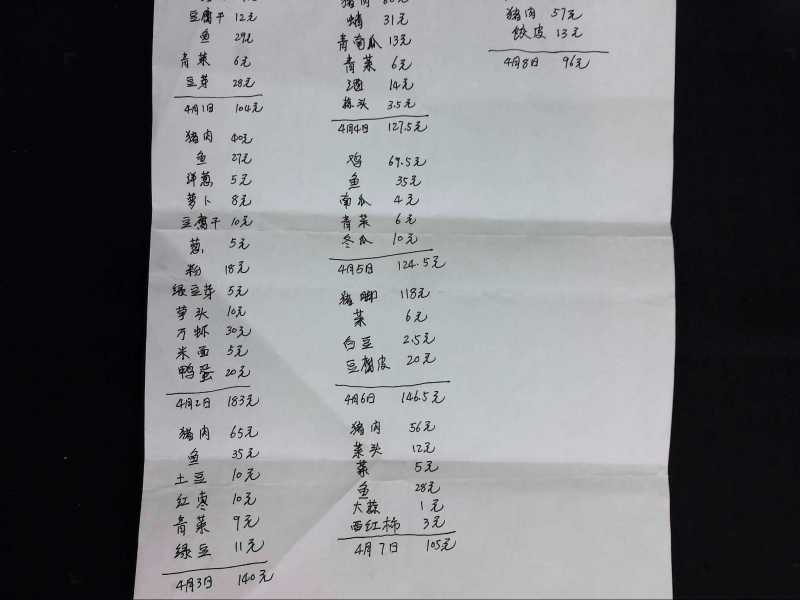 豆腐干 12元
鱼 29元
青菜 6元
豆芽 28元
4月1日 104元
猪肉 40元
鱼 27元
洋葱 5元
萝卜 8元
豆腐干 10元
葱 5元
粉 18元
绿豆芽 5元
芋头 10元
河虾 30元
米面 5元
鸭蛋 20元
4月2日 183元
猪肉 65元
鱼 35元
土豆 10元
红枣 10元
青菜 9元
绿豆 11元
4月3日 140元
猪肉
31元
青南瓜 13元
青菜 6元
14元
蒜头 3.5元
4月4日 127.5元
鸡 69.5元
鱼 35元
南瓜 4元
青菜 6元
冬瓜 10元
4月5日 124.5元
猪脚 118元
菜 6元
白豆 2.5元
豆腐皮 20元
4月6日 146.5元
猪肉 56元
菜头 12元
菜 5元
鱼 28元
大蒜 1元
西红柿 3元
4月7日 105元
猪肉 57元
饺皮 13元
4月8日 96元